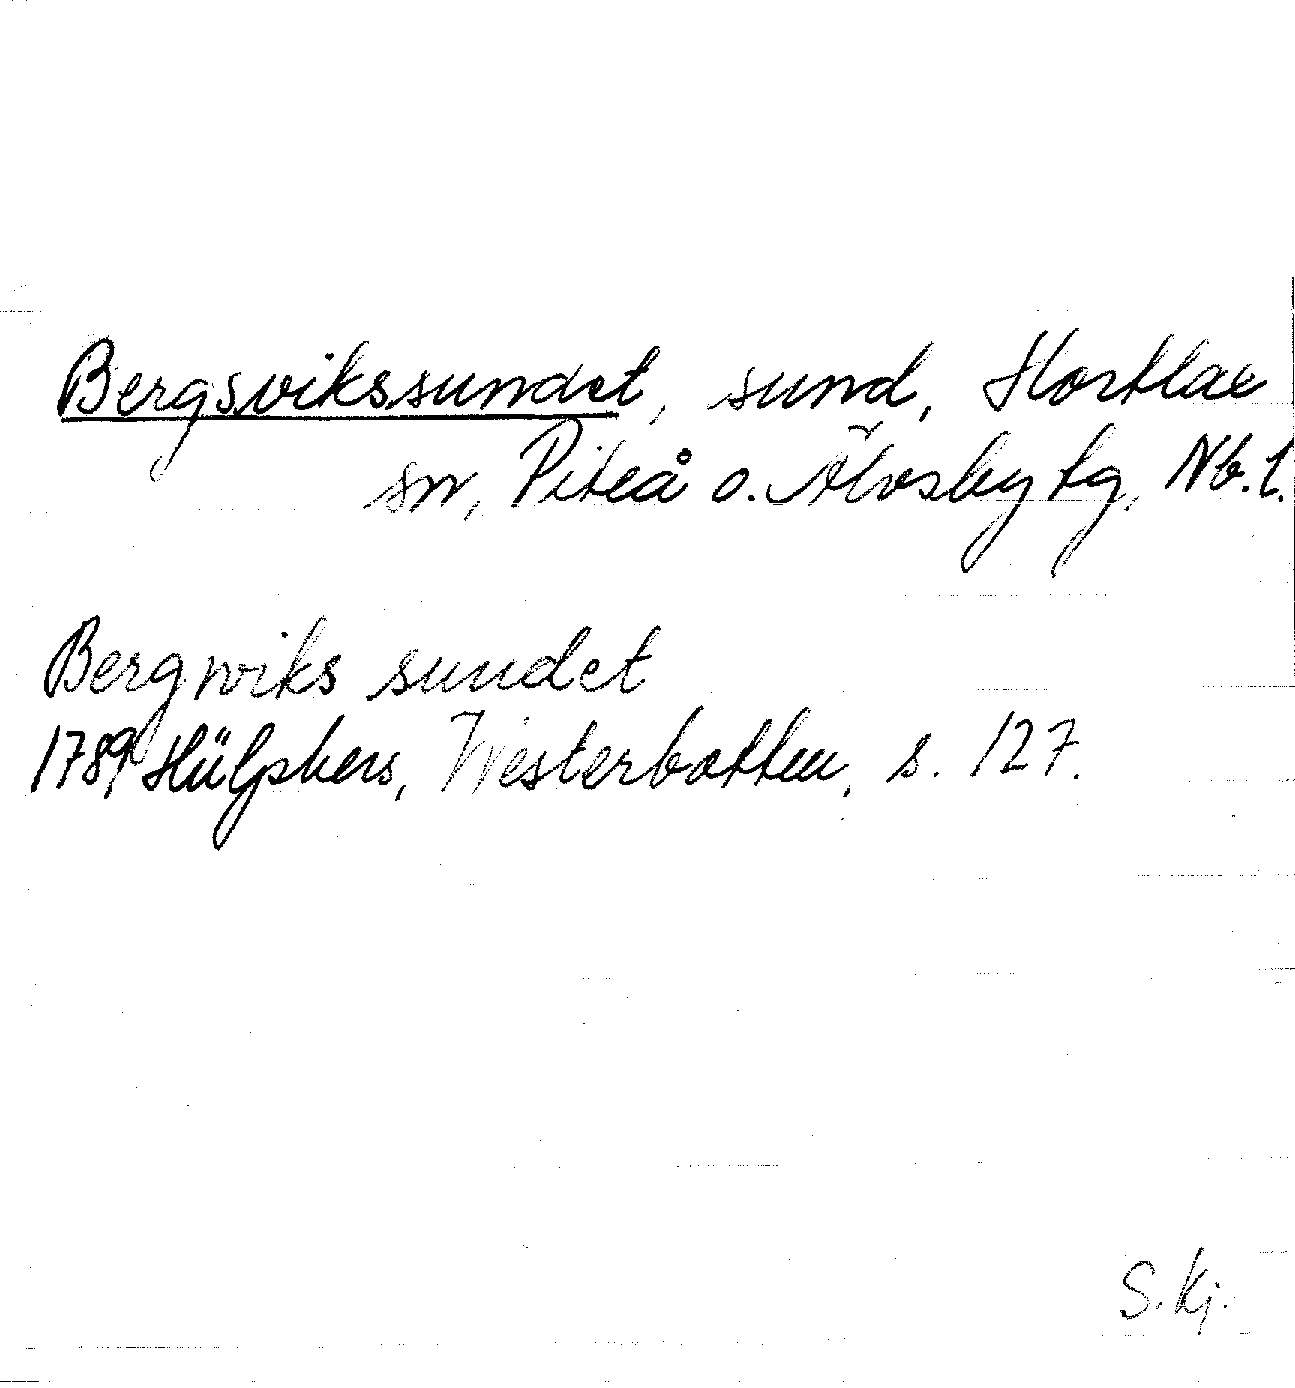 Bergsvikssundet, sund, Hortlax
sn, Piteå o. Älvsby tg, Nb. l.
Bergwiks sundet
1789 Hülphers, Westerbotten, s. 127.
S. Kj.